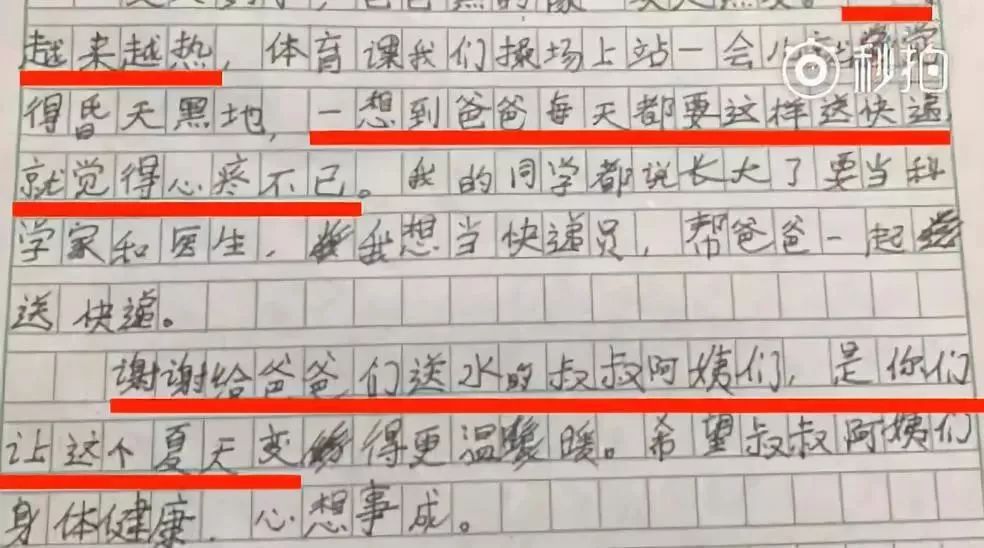 爸爸黑的像
越来越热，体育课我们操场上站一会儿
秒拍
得昏天黑地，一想到爸爸每天都要这样送快递
就觉得心疼不已。我的同学都说长大了要当科
学家和医生，我想当快递员，帮爸爸一起
送快递。
谢谢给爸爸们送水的叔叔阿姨们，是你们
让这个夏天变得更温暖暖。希望叔叔阿姨们
身体健康，心想事成。